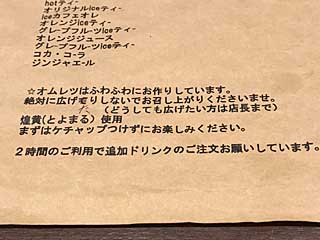 hotティｰ
オリジナルiceティｰ
iceカフェオレ
オレンジiceティｰ
グレｰプフルｰツiceティｰ
オレンジジュｰス
グレｰプフルｰツジュｰス
コカ・コｰラ
ジンジャエｰル
☆オムレツはふわふわにお作りしています。
絶対に広げたりしないでお召し上がりくださいませ。
(どうしても広げたい方は店長まで)
煌黄(とよまる)使用
まずはケチャップつけずにお楽しみください。
２時間のご利用で追加ドリンクのご注文お願いしています。